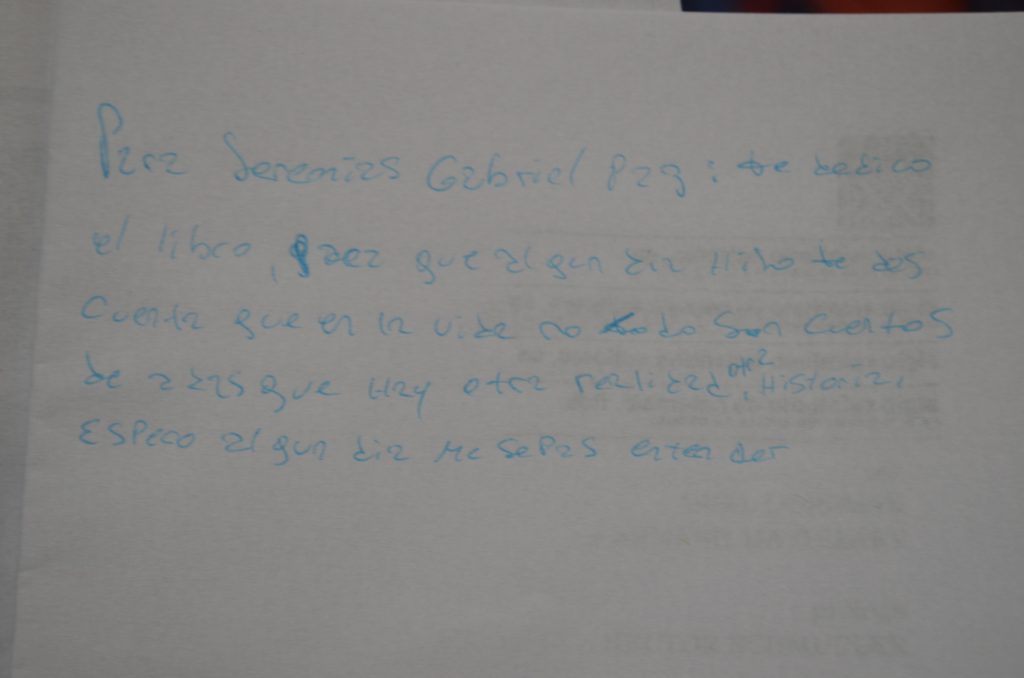 Para Jeremias Gabriel Paz: te dedico
el libro, para que algun dia Hijo te des
Cuenta que en la vida no todo son Cuentos
de adas que Hay otra realidad, otra Historia,
ESPero algun dia Me SePas entender